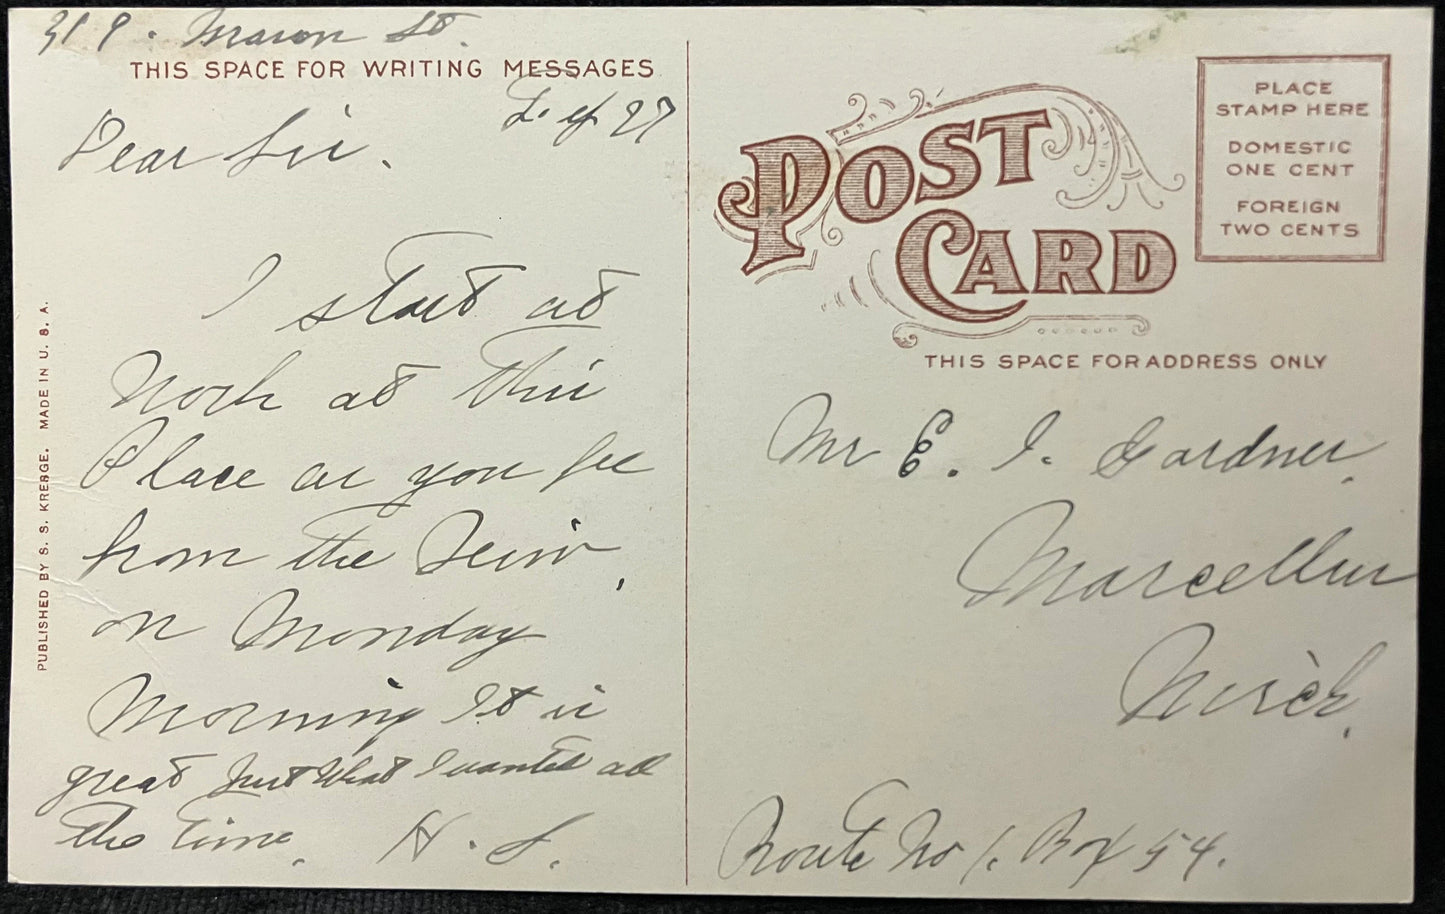 319. Mason St.
THIS SPACE FOR WRITING MESSAGES
27
Dear Sir.
I start at
Work at this
Place as you see
from the View,
on Monday
Morning It is
great Just What I wanted all
the time. H. S.
PUBLISHED BY S. S. KRESGE. MADE IN U. S. A.
POST
CARD
PLACE
STAMP HERE
DOMESTIC
ONE CENT
FOREIGN
TWO CENTS
THIS SPACE FOR ADDRESS ONLY
Mr E. I. Gardner,
Marcellus
Mich.
Route No 1. Box 54.